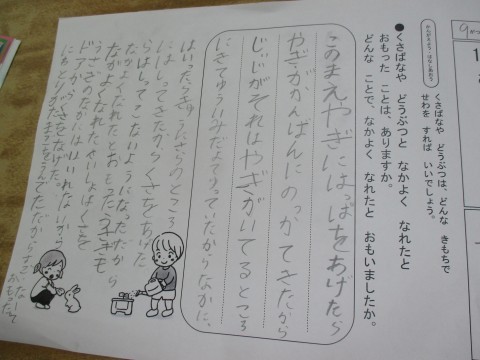 かんがえよう・はなしあおう
くさばなや どうぶつは、どんな きもちで
せわを すれば いいでしょう。
●くさばなや どうぶつと なかよく なれたと
おもった ことは、ありますか。
どんな ことで、なかよく なれたと おもいましたか。
このまえやぎにはっぱをあげたら
やぎがかんばんにのっかてきたから
じいじがそれはやぎがいてるところ
にきてゅういみだよてゅっていたからなかに、
はいったらきゅうにさらのところ
にはしってきたからくさをあげた
らはしってこないようになったたから
なかよくなれたとおもった
なかよくなれたさいしょはくさを
うさぎのなかにはいれないから
ドアからくさをなげた。
にわとりがたまごをうんでたから
おもった